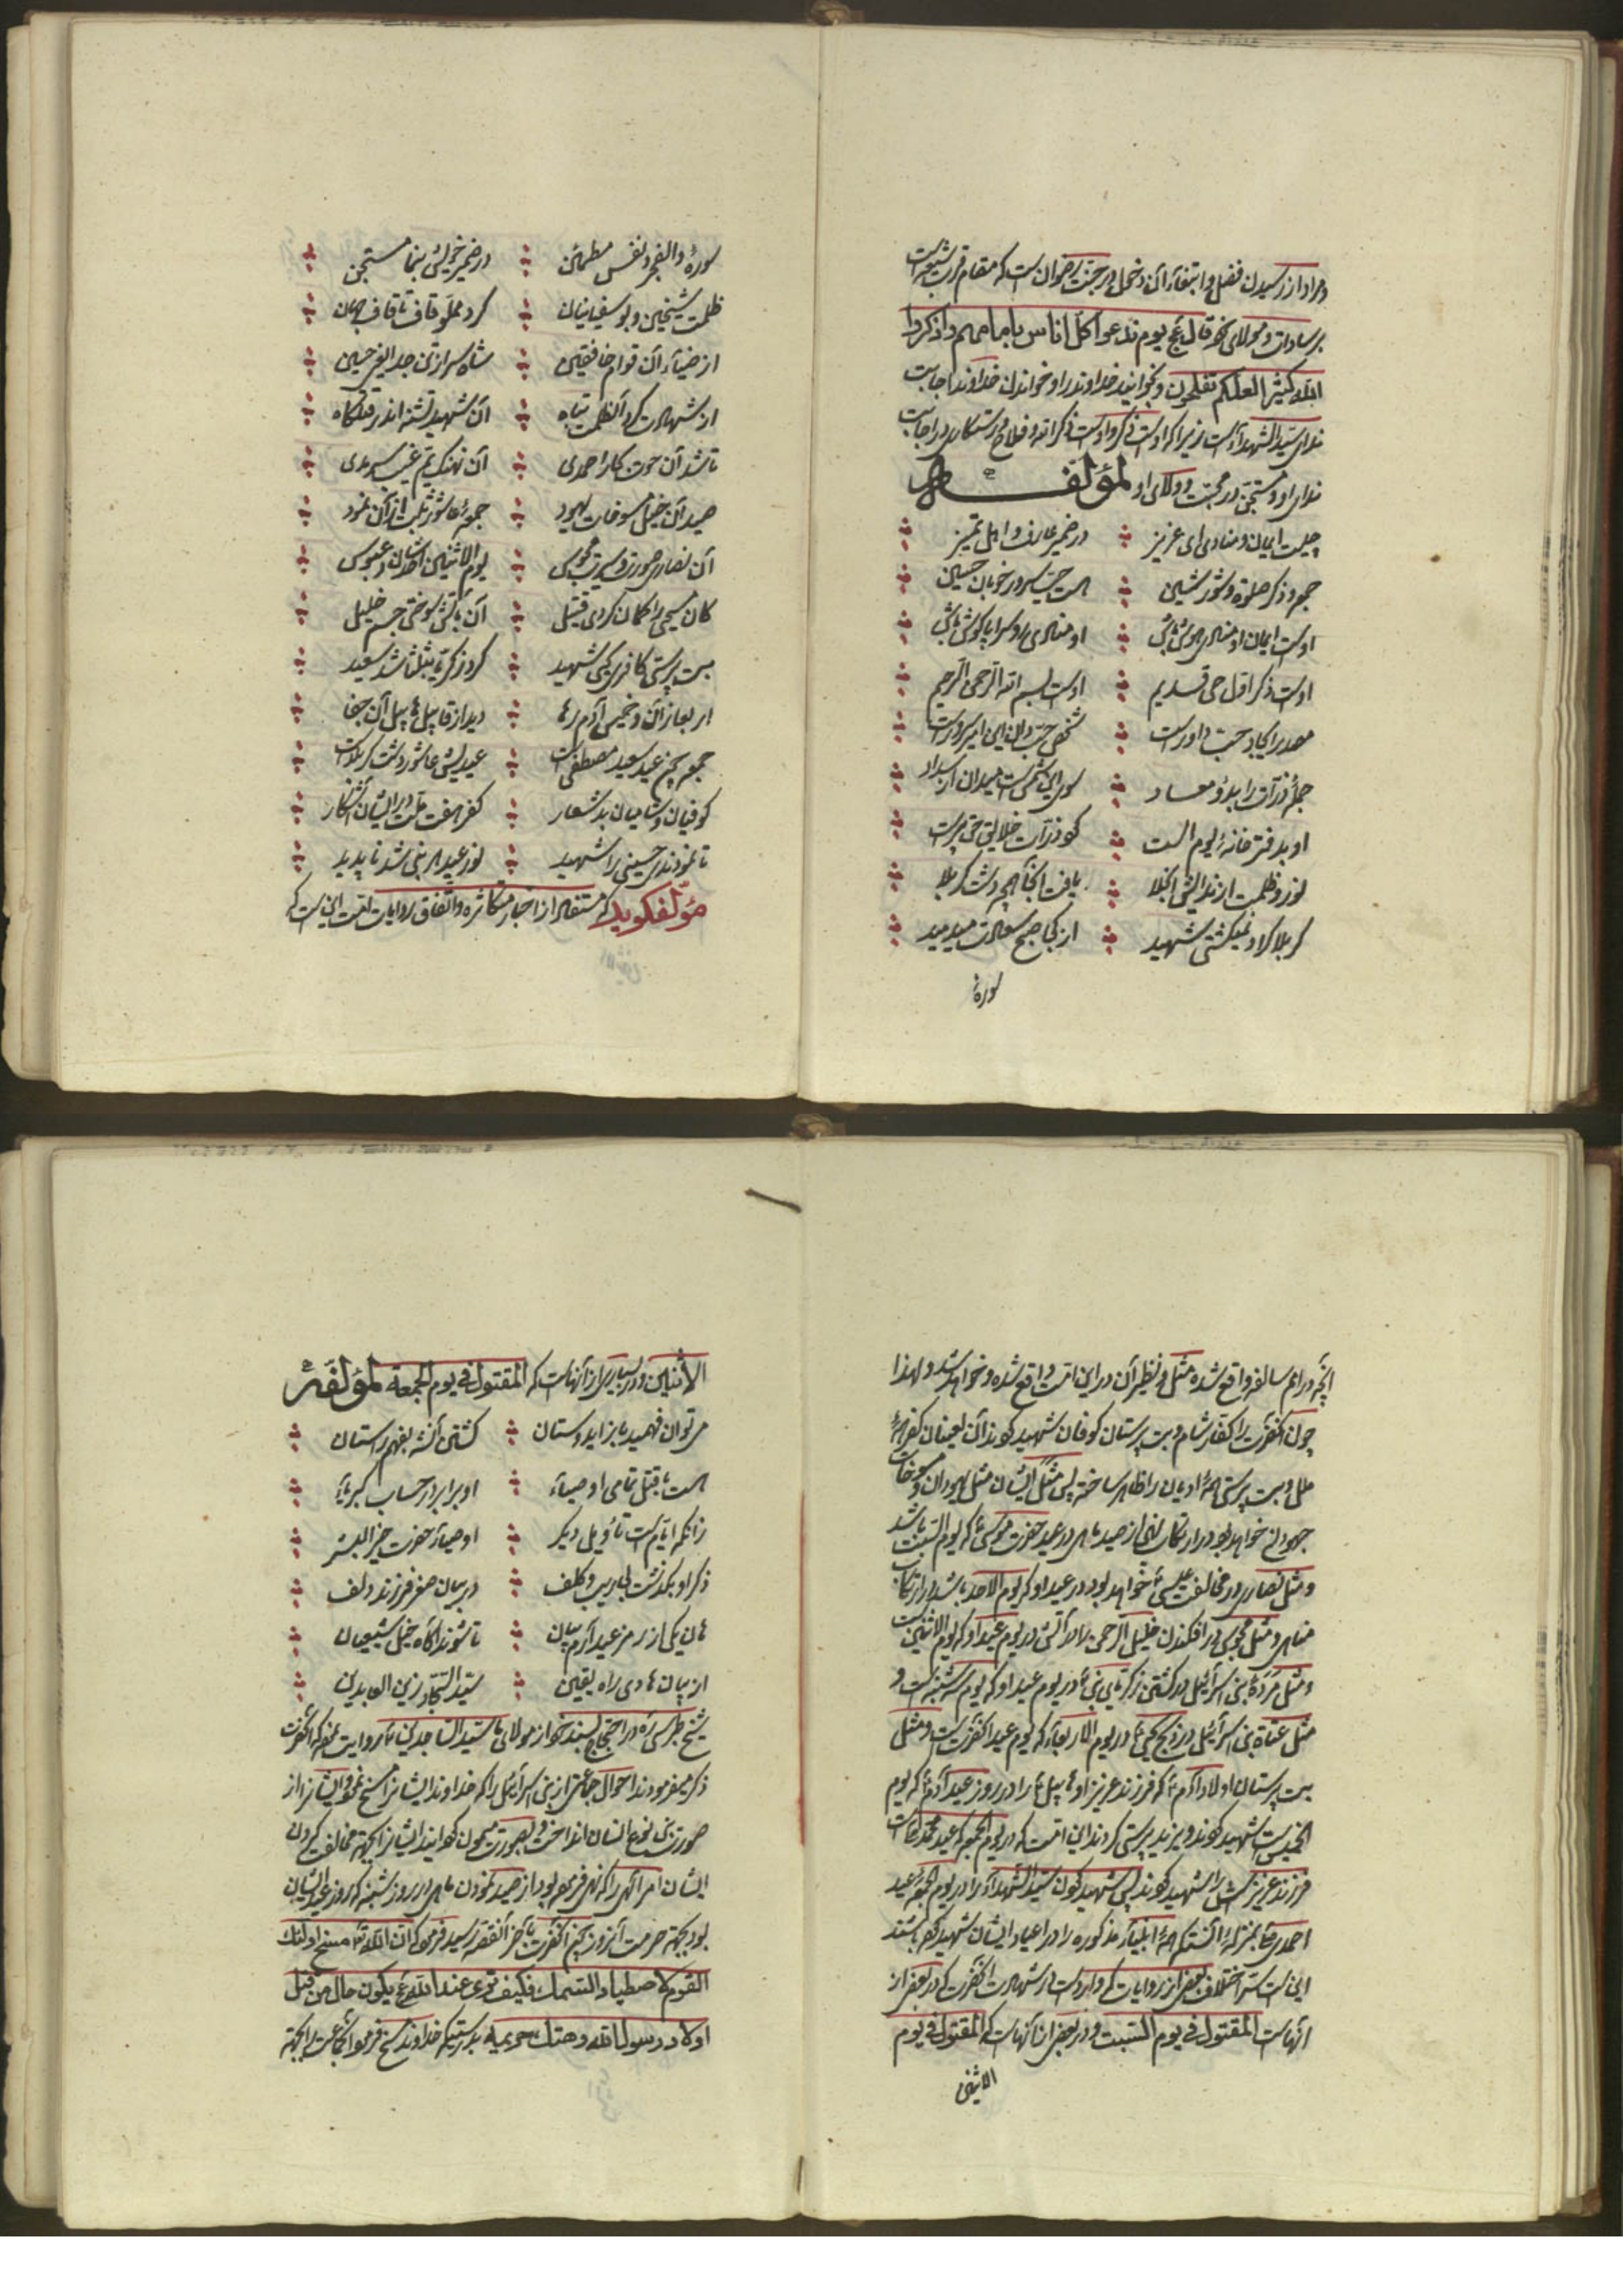 و مراد از رسیدن فضل و ابتغاء آن دخول در جنت رضوان است که مقام قرب شیعه است
بر سادات و مولای خود قال ع یوم ندعوا کل اناس بامامهم و اذکروا
الله کثیرا لعلکم تفلحون و بخوانید خداوند را و خواندن خداوند اجابت
ندای سید الشهداء است زیرا که اوست ذکر و اوست ذکر الله و فلاح و رستگاری در اجابت
ندای او و مستجن در محبت و ولای او لمؤلفه
چیست ایمان و منادی ای عزیز در ضمیر عارف و اهل تمیز
جمعه و ذکر صلوة و شور شین هست حب سرور خوبان حسین
اوست ایمان او منادی هوش باش او منادی را و سراپا گوش باش
اوست ذکر اول حی قدیم اوست بسم الله الرحمن الرحیم
مصدر ایجاد حب داور است شخص حب والای این امیر سرور است
جمله ذرات را بدو معاد سوی این شمس است میدان از سداد
او بدفترخانه یوم الست کو ذرات خلایق حق پرست
نور و ظلمت از ندایش انجلا یافت آنجا همچو دشت کربلا
کربلا گر او نمیگشتی شهید از کجا صبح سعادت میدمید
سورهٔ
سورهٔ والفجر و نفس مطمئن در ضمیر خویش بنما مستجن
ظلمت شیخین و بوسفیانیان کرد مملو قاف تا قاف جهان
از ضیاء آن قوام خافقین شاه سر از تن جدا یعنی حسین
از شهادت کرد آن ظلمت تباه آن شهید تشنه اندر قتلگاه
تا شد آن حوت کار احمدی آن نهنگ یم غیب سرمدی
صید آن خیل مسوخات یهود جمعه عاشور ثلث از آن نمود
آن نصاری صورت و سیرت مجوس یوم الاثنین احدشان عبوس
کان مسیحی را گمان کردی قتیل آن بآتش سوختی جسم خلیل
بت پرستی کافری یحیی شهید کرد زکریا بثلثا شد سعید
اربعا زان و خمیس آدم رها دید از قابیل هابیل آن جفا
جمعه چون عید سعید مصطفی است عید بین عاشور دشت کربلاست
کوفیان و شامیان بد شعار کفر هفت ملت از ایشان آشکار
تا نمودندی حسینی را شهید نور عید هر نبی شد ناپدید
مؤلف گوید که مستفاد از اخبار متکاثره و اتفاق روایات امت این است که
آنچه در امم سالفه واقع شده مثل و نظیر آن در این امت واقع شده و خواهد شد و لهذا
چون آنحضرت را کفار شام و بت پرستان کوفان شهید کردند آن لعینان کفر همهٔ
ملل و بت پرستی همهٔ ادیان را ظاهر ساخته پس مثل ایشان مثل یهودان و مسوخات
جهودان خواهد بود در ارتکاب نهی از صید ماهی در عید حضرت موسی ع که یوم السبت باشد
و مثل نصاری در مخالفت عیسی ع خواهد بود در عید او که یوم الاحد باشد در ارتکاب
مناهی و مثل مجوس در افکندن خلیل الرحمن را در آتش در یوم عید او که یوم الاثنین است
و مثل مَرَدَهٔ بنی اسرائیل در کشتن زکریای نبی ع در یوم عید او که یوم سه شنبه است و
مثل عتاة بنی اسرائیل در ذبح یحیی ع در یوم الاربعاء که یوم عید آنحضرت است و مثل
بت پرستان اولاد آدم ع که فرزند عزیز او هابیل ع را در روز عید آدم ع که یوم
الخمیس است شهید کردند و یزید پرستی کردند این امت که در یوم الجمعه که عید محمد ص است
فرزند عزیزش را شهید کردند پس شهید کردن سید الشهداء را در یوم الجمعهٔ عید
احمدی ص بمنزلهٔ آنستکه همهٔ انبیاء مذکوره را در اعیاد ایشان شهید کرده باشند
این است سرّ اختلاف بعضی از روایات که وارد است در شهادت آنحضرت که در بعضی از
آنها است المقتول فی یوم السبت و در بعضی از آنهاست که المقتول فی یوم
الاثنین
الاثنین و در بسیاری از آنهاست که المقتول فی یوم الجمعة لمؤلفه
می توان فهمید باز اید وستان کشتن آنشه بفهم راستان
هست با قتل تمامی اوصیاء او برابر در حساب کبریاء
زانکه ایام است تأویلی دیگر اوصیاء حضرت خیر البشر
ذکر او بگذشت بی ریب و کلف در بیان صقر فرزند دلف
هان یکی از رمز عید آرم بیان تا شوند آگاه خیل شیعیان
از بیان هادی راه یقین سید السجاد زین العابدین
شیخ طبرسی ره در احتجاج بسند خود از مولای ما سید الساجدین ع روایت نموده که آنحضرت
ذکر میفرمودند احوال جماعتی از بنی اسرائیل را که خداوند ایشانرا مسخ نمود و ایشانرا از
صورت بنی نوع انسان انداخت و بصورت میمون گردانید ایشانرا بجهة مخالفت کردن
ایشان امر الهی را که نهی فرموده بود از صید نمودن ماهی در روز شنبه که روز عید ایشان
بود بجهة حرمت آنروز چون آنحضرت بآخر آنقصه رسید فرمود که ان الله تع مسخ اولئک
القوم لاصطیاد السمک فکیف تری عند الله ع یکون حال من قتل
اولاد رسول الله و هتک حریمه بدرستیکه خداوند مسخ فرمود آنجماعت را بجهة